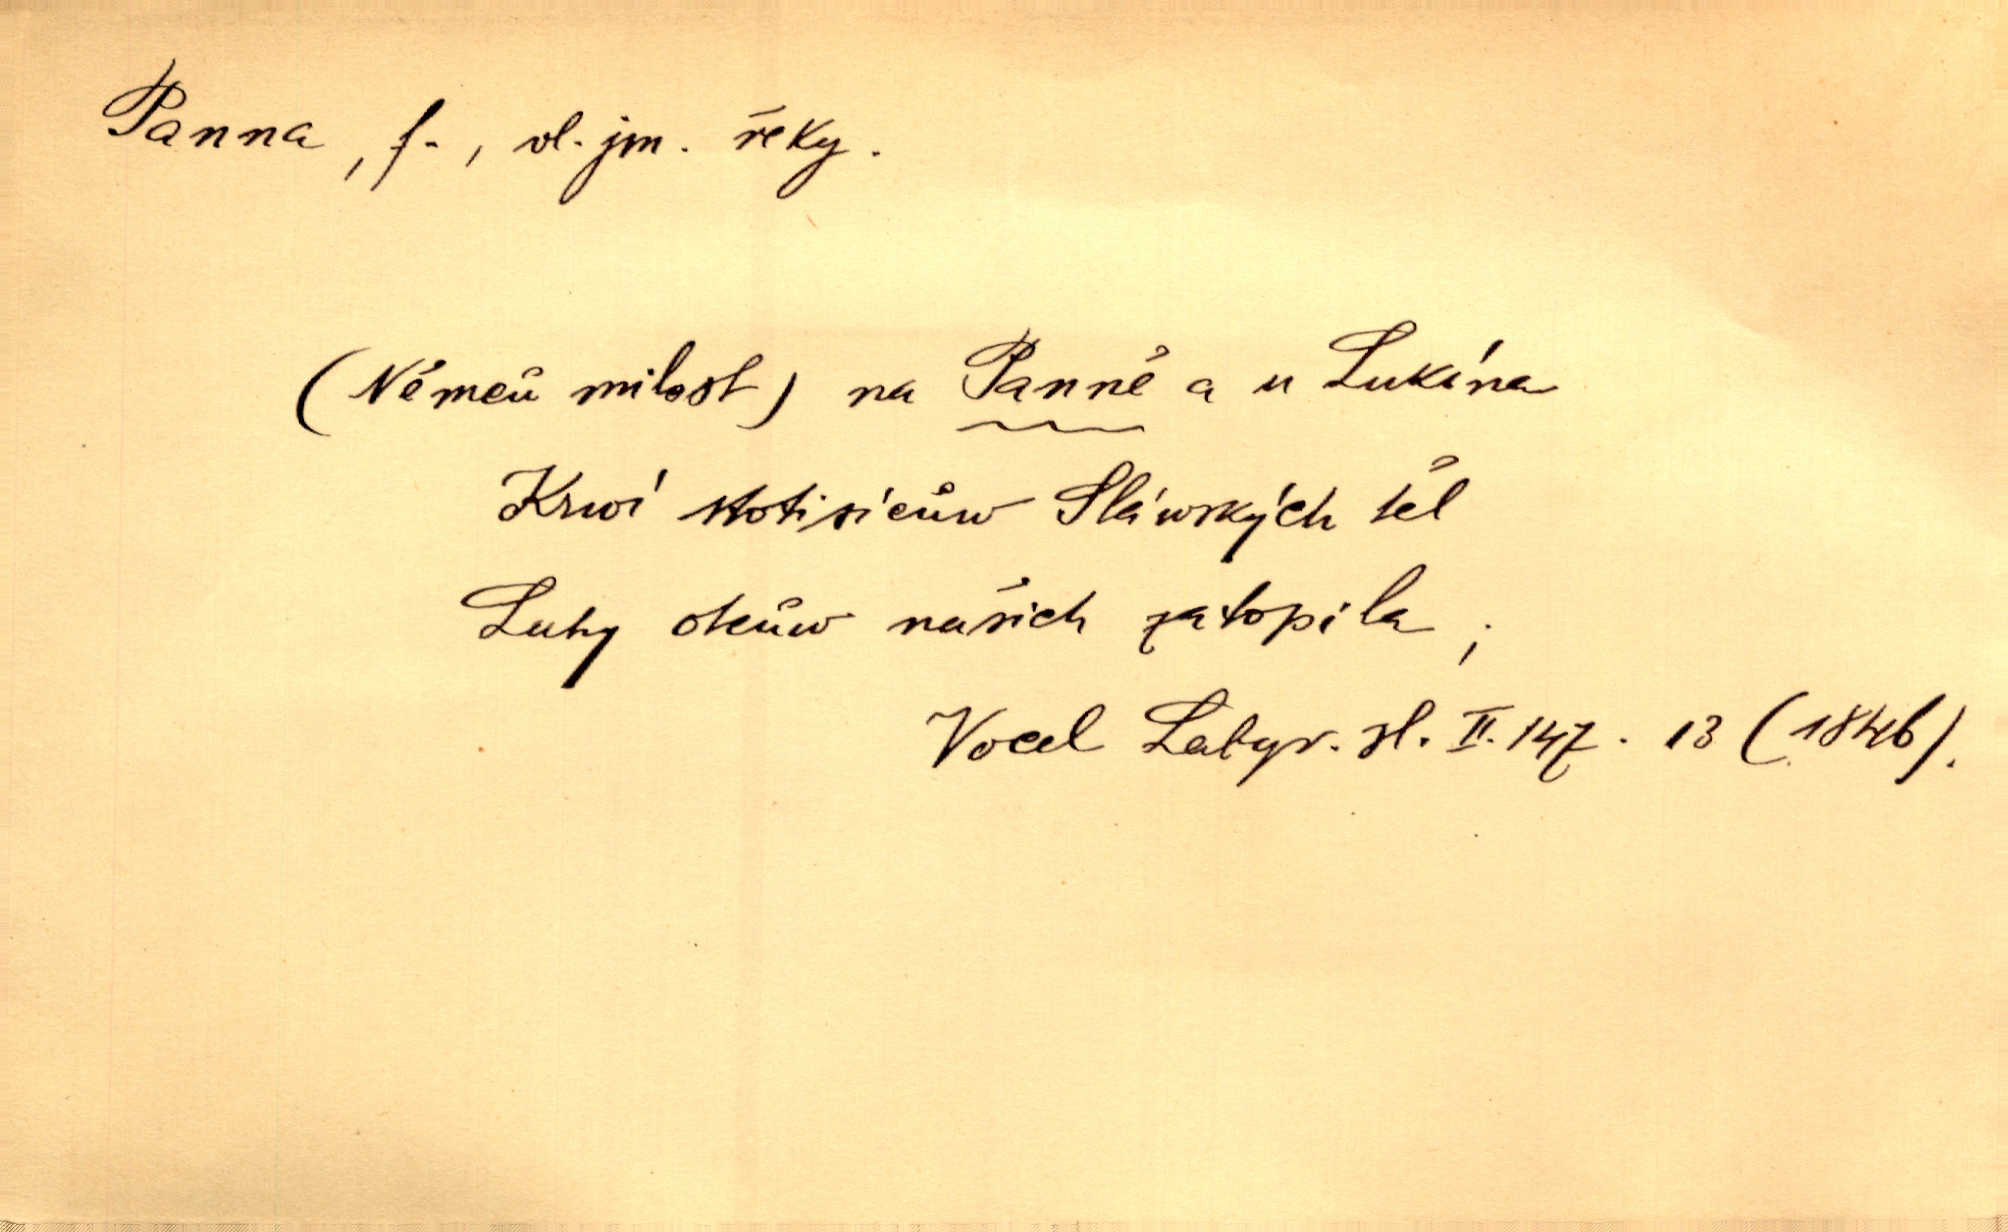 Panna, f., vl. jm. řeky.
(Němců milost) na Panně a u Lukína
Krwí stotisíców Sláwských těl
Luhy otcůw našich zatopila;
Vocel Labyr. sl. II. 147. 13 (1846).